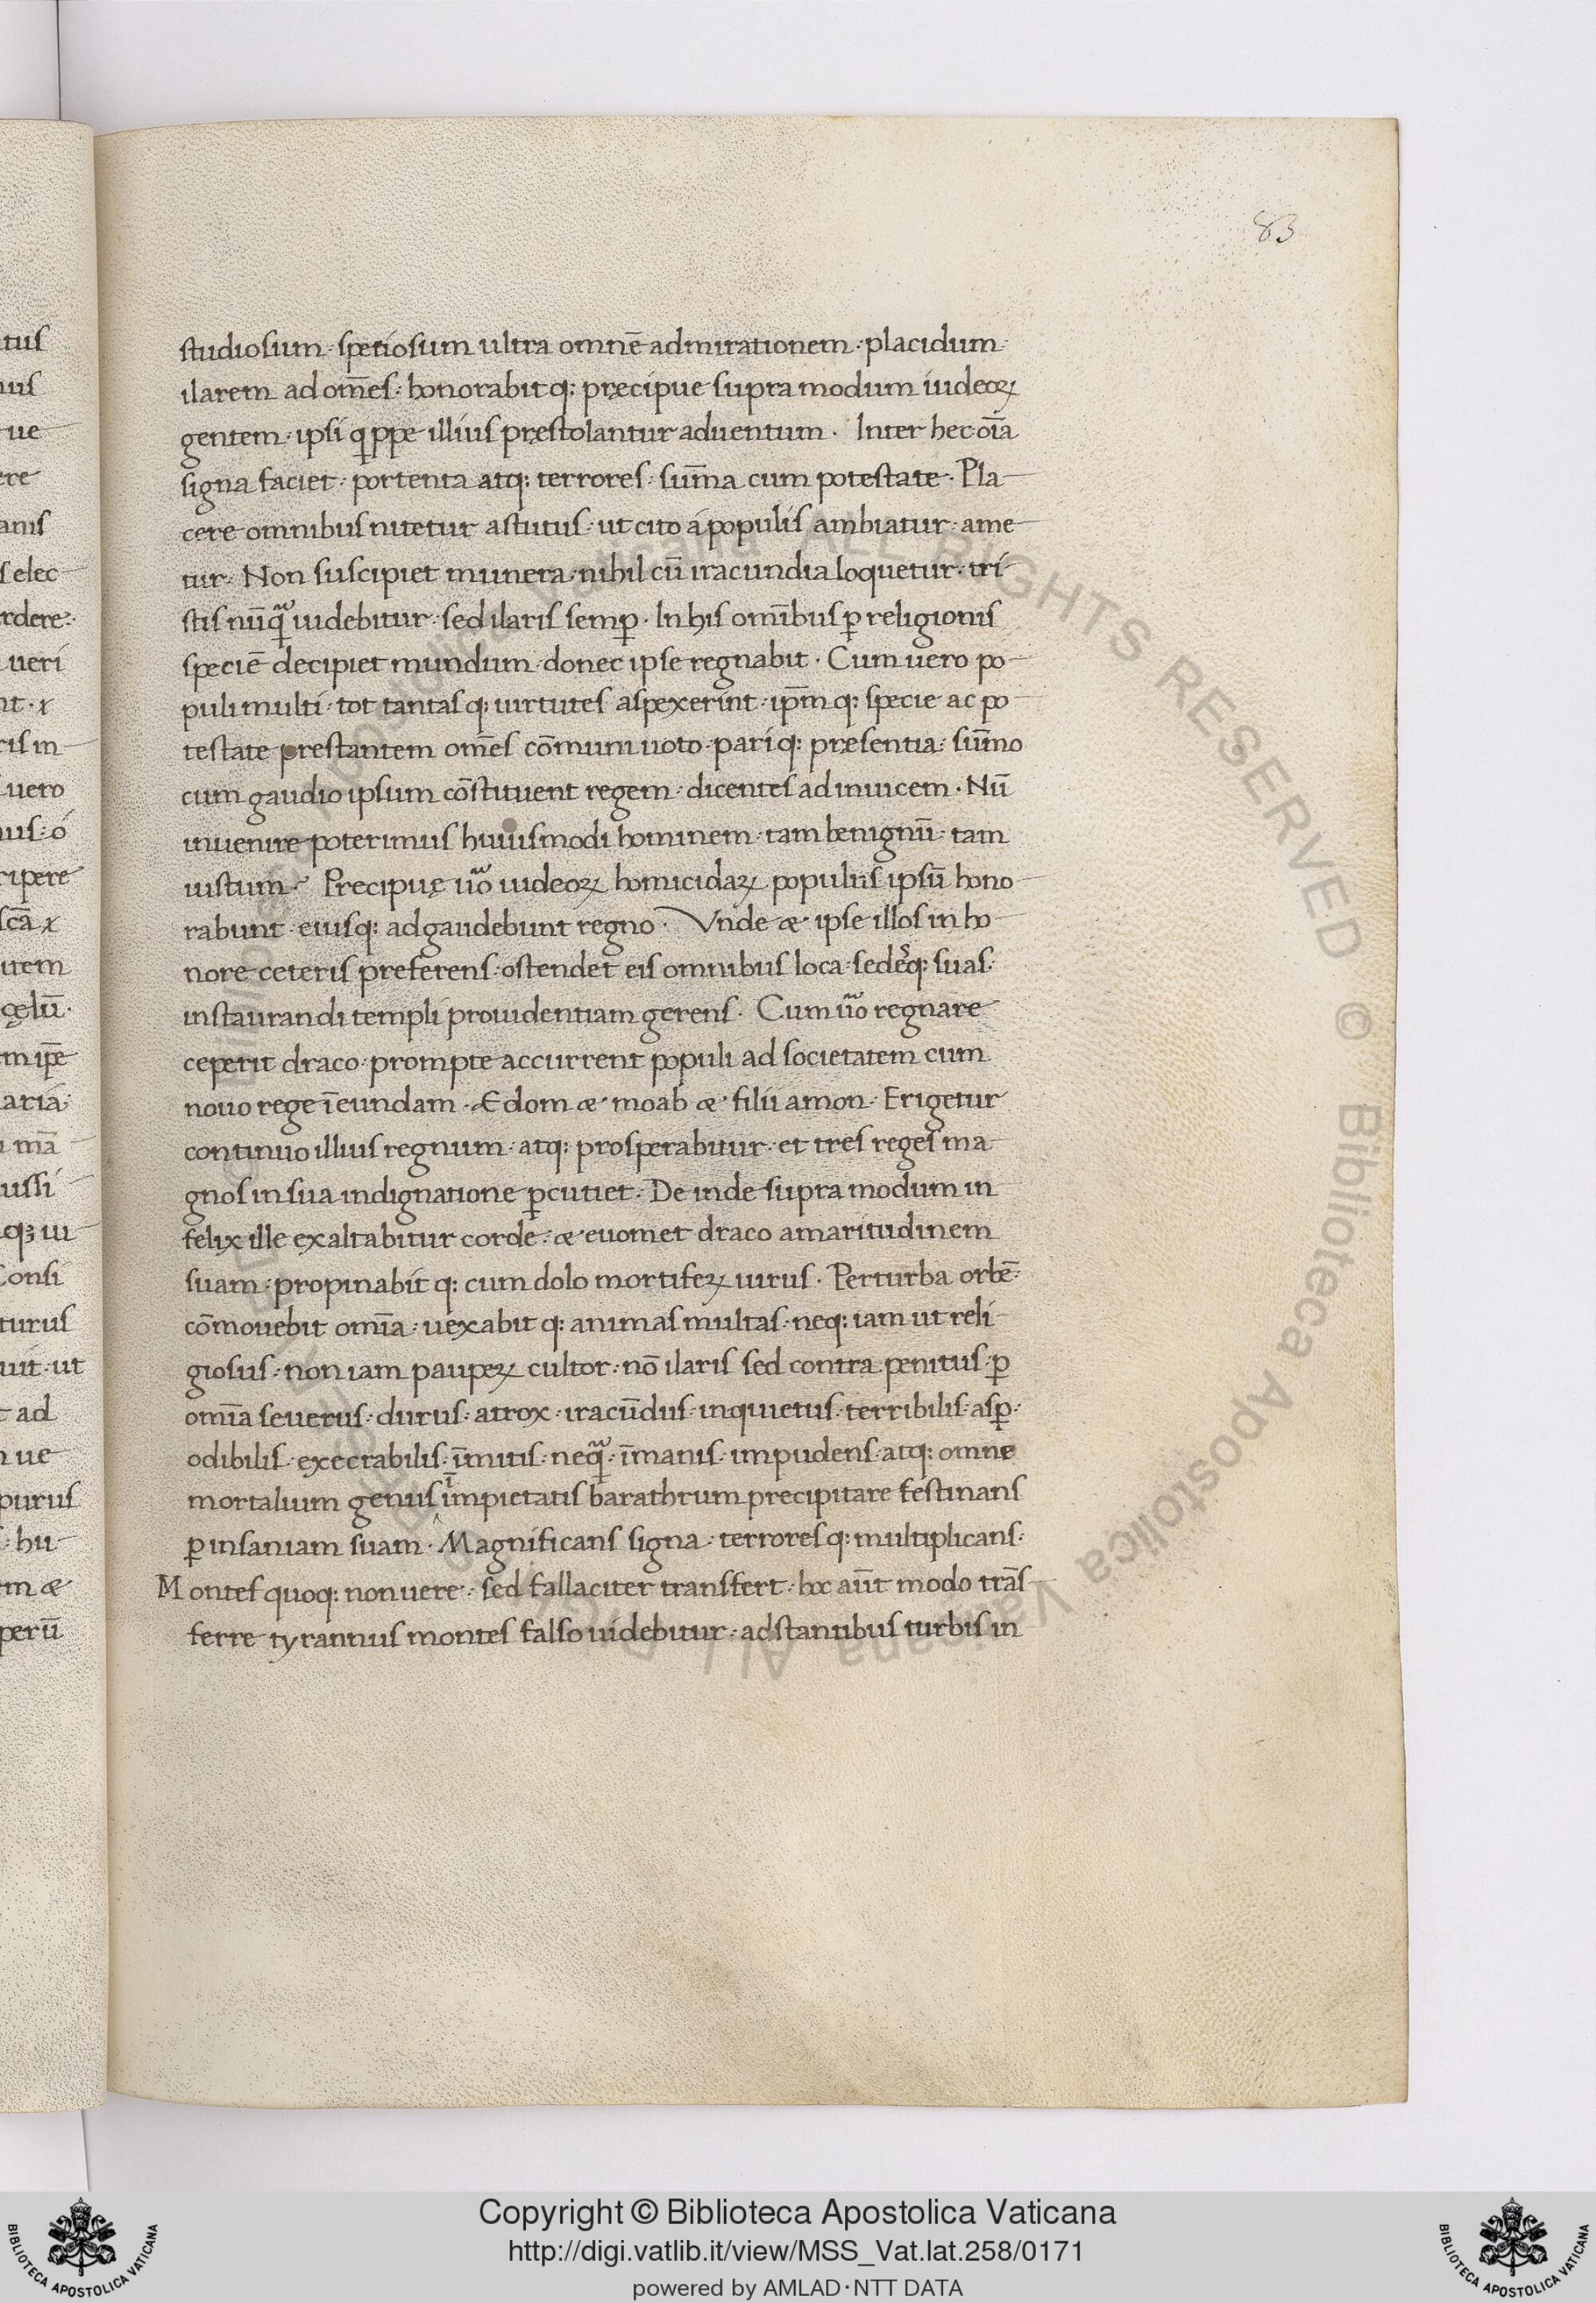 83
studiosum · spetiosum ultra omnē admirationem · placidum ·
ilarem ad om̄es · honorabit q: pręcipue supra modum iudeoꝝ
gentem · ipsi q̇ppe illius pręstolantur aduentum · Inter hec oīa
signa faciet · portenta atq: terrores · sum̄a cum potestate · Pla
cere omnibus nitetur astutus · ut cito á populis ambiatur · ame
tur · Non suscipiet munera · nihil cū iracundia loquetur · tri
stis nūqᷓ uidebitur · sed ilaris semꝑ · In his om̄ibus ꝑ religionis
speciē decipiet mundum donec ipse regnabit · Cum uero po
puli multi · tot tantasq: uirtutes aspexerint · ip̄m q: specie ac po
testate prestantem om̄es cōmuni uoto · pari q: pręsentia · sum̄o
cum gaudio ipsum cōstituent regem · dicentes ad inuicem · Nū
inuenire poterimus huiusmodi hominem · tam benignū · tam
iustum · Precipuę ūo iudeoꝝ homicidaꝝ populus ipsū hono
rabunt · eiusq: adgaudebunt regno · Vnde æ ipse illos in ho
nore ceteris preferens · ostendet eis omnibus loca · sedesq: suas ·
instaurandi templi prouidentiam gerens · Cum ūo regnare
ceperit draco · prompte accurrent populi ad societatem cum
nouo rege īeundam · Ædom æ moab æ filii amon · Erigetur
continuo illius regnum · atq: prosperabitur · et tres reges ma
gnos in sua indignatione ꝑcutiet · De inde supra modum in
felix ille exaltabitur corde · æ euomet draco amaritudinem
suam · propinabit q: cum dolo mortifeꝝ uirus · Perturba orbē ·
cōmouebit om̄ia · uexabit q: animas multas · neq: iam ut reli
giosus · non iam paupeꝝ cultor · nō ilaris sed contra penitus ꝑ
om̄ia seuerus · durus · atrox · iracūdus · inquietus · terribilis · asꝑ ·
odibilis · execrabilis · īmitis · neqᷓ · īmanis · impudens · atq: omne
mortalium genus ī impietatis barathrum precipitare festinans
ꝑ insaniam suam · Magnificans signa · terroresq: multiplicans ·
Montes quoq: non uere · sed fallaciter transfert · hoc aūt modo trās
ferre tyrannus montes falso uidebitur · adstantibus turbis in
tus
ue
ere
anis
s elec
rdere
ueri
ris in
uero
ripere
uem
aria
ussi
Consi
turus
uit · ut
ad
ue
purus
hu
perū
Copyright © Biblioteca Apostolica Vaticana
http://digi.vatlib.it/view/MSS_Vat.lat.258/0171
powered by AMLAD·NTT DATA
BIBLIOTECA APOSTOLICA VATICANA
BIBLIOTECA APOSTOLICA VATICANA
ALL RIGHTS RESERVED © Biblioteca Apostolica Vaticana